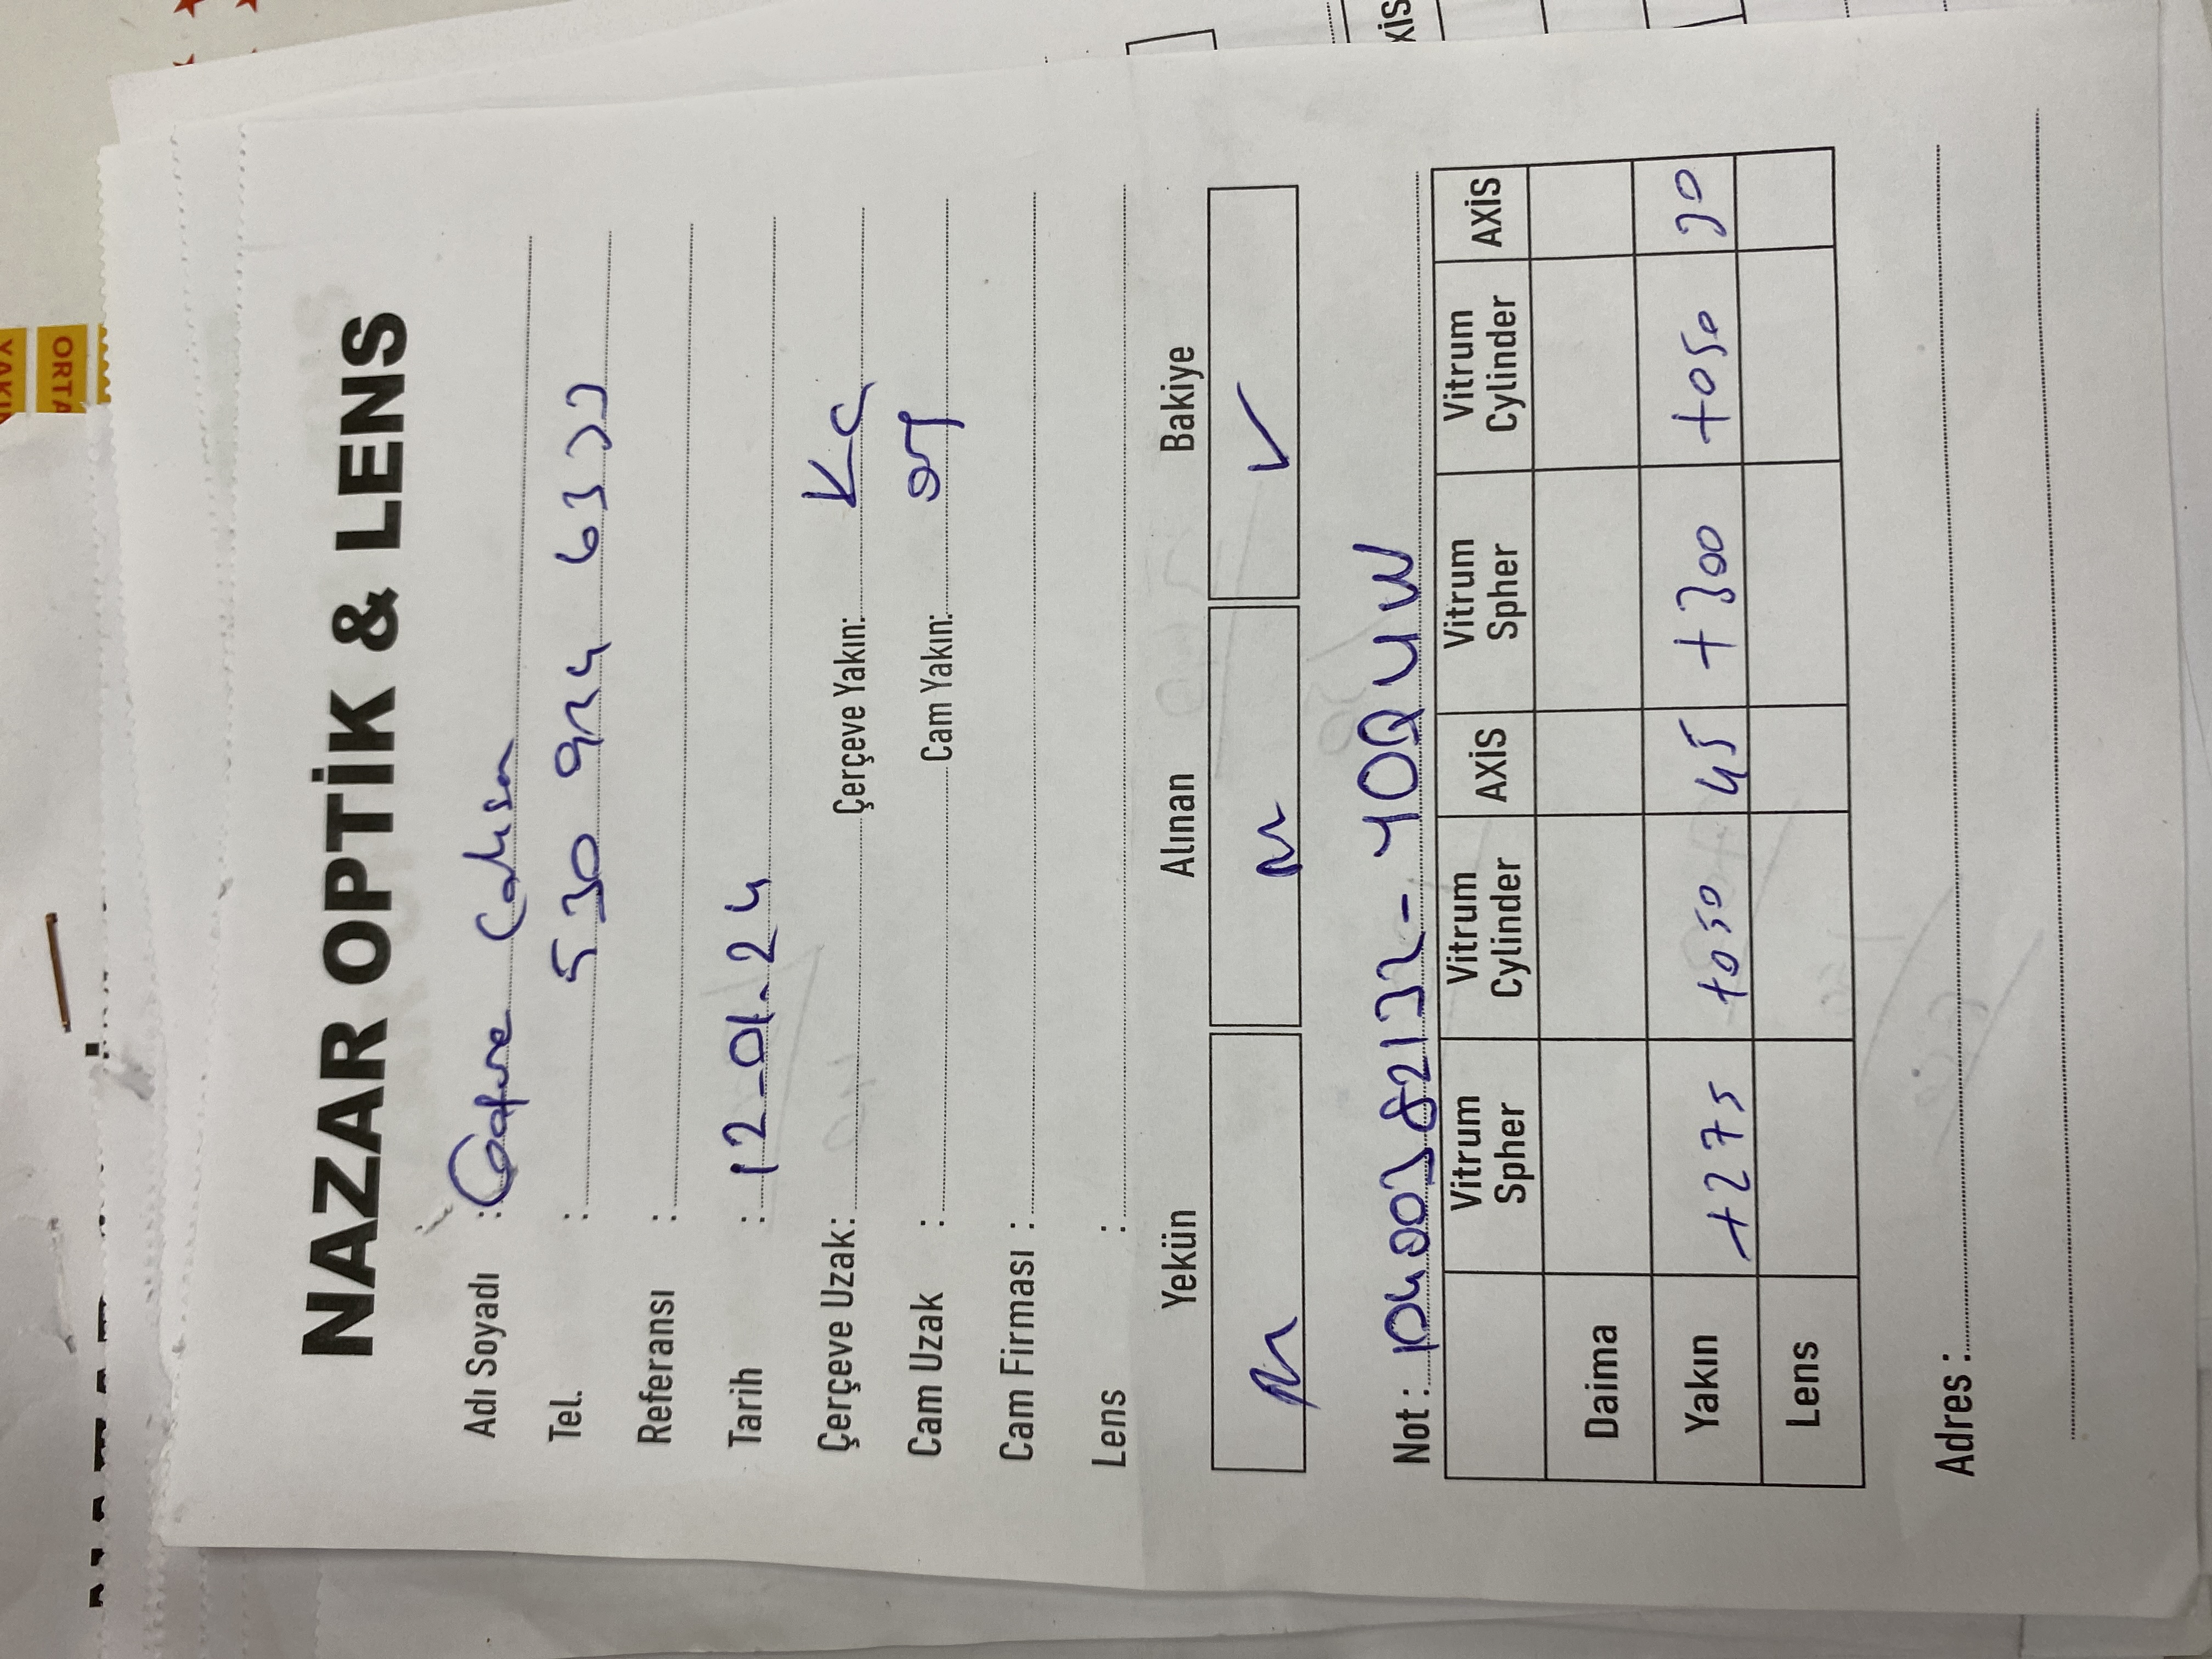 YAKIN
ORTA
NAZAR OPTİK & LENS
Adı Soyadı :
Tel. : 530 924 6333
Referansı :
Tarih : 12-01.24
Çerçeve Uzak: Çerçeve Yakın: KÇ
Cam Uzak : Cam Yakın:
Cam Firması :
Lens :
Yekün Alınan Bakiye
Not : 10400382132-YOQUW
Vitrum Spher Vitrum Cylinder AXİS Vitrum Spher Vitrum Cylinder AXİS
Daima
Yakın +275 +050 45 +300 +050 30
Lens
Adres :
XİS